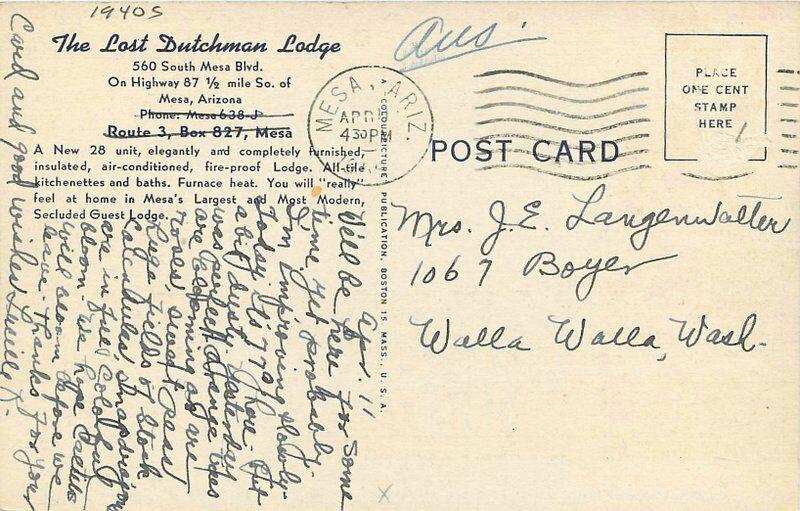 1940s
The Lost Dutchman Lodge
560 South Mesa Blvd.
On Highway 87 ½ mile So. of
Mesa, Arizona
Phone: Mesa 638-J
Route 3, Box 827, Mesa
A New 28 unit, elegantly and completely furnished,
insulated, air-conditioned, fire-proof Lodge. All-tile
kitchenettes and baths. Furnace heat. You will "really"
feel at home in Mesa's Largest and Most Modern,
Secluded Guest Lodge.
Apr. 11
We'll be here for some
time yet probably.
I'm improving slowly.
Today its 77° here - but
a bit dusty. Yesterday
was perfect. Orange trees
are blooming as are
roses, sweet peas,
Large fields of stock
Calendulas, Snapdragons
are in full colorful
bloom. We hope Cactus
will bloom before we
leave. Thanks for your
Card and good wishes Lucille K.
A COLOURPICTURE PUBLICATION, BOSTON 15, MASS., U.S.A.
Ans.
MESA, ARIZ.
APR
4 30 PM
PLACE
ONE CENT
STAMP
HERE
POST CARD
Mrs. J. E. Langenwalter
1067 Boyer
Walla Walla, Wash.
X